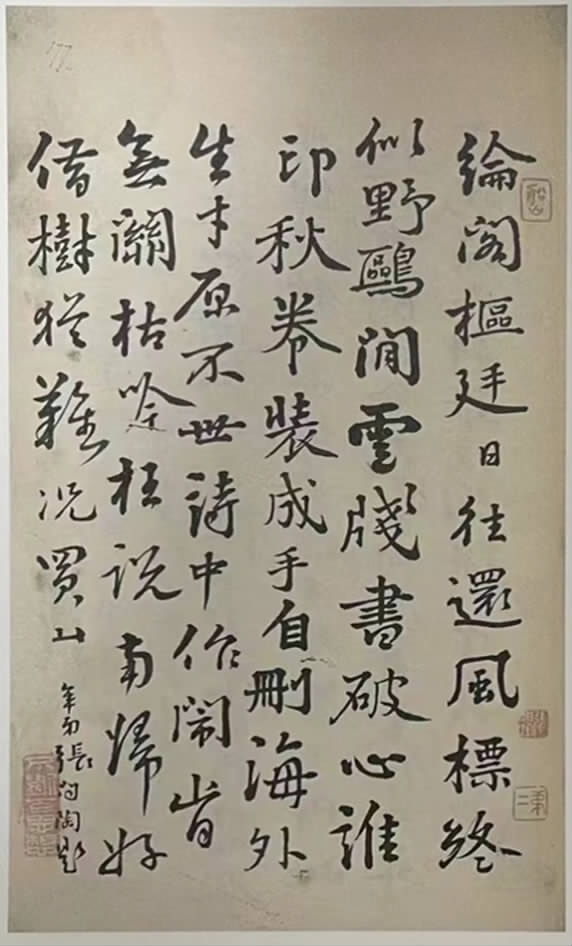 綸閣樞廷日往還風標終
似野鷗閒雲牋書破心誰
印秋卷裝成手自刪海外
生才原不世詩中作鬧肯
無關枯吟枉說南歸好
借樹猶難況買山
年弟張問陶題